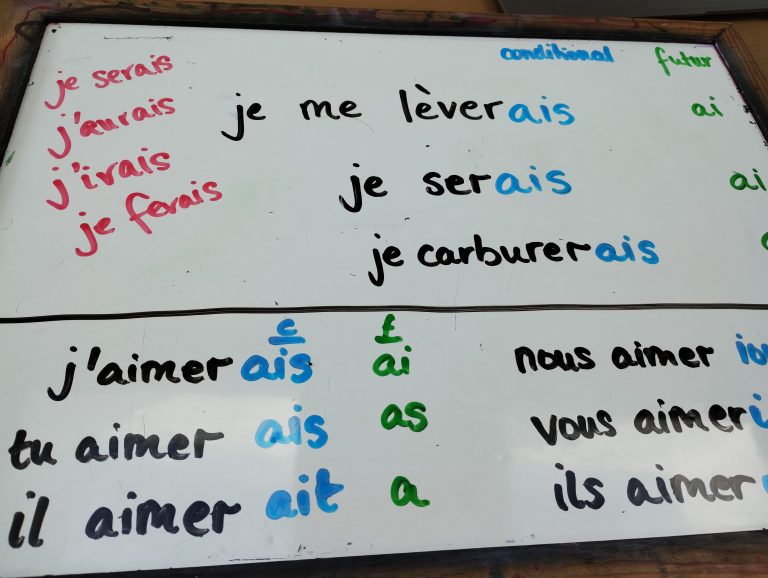 conditional futur
je serais
j'aurais
j'irais
je ferais
je me lèverais ai
je serais ai
je carburerais
c f
j'aimer ais ai
tu aimer ais as
il aimer ait a
nous aimer io
vous aimer i
ils aimer